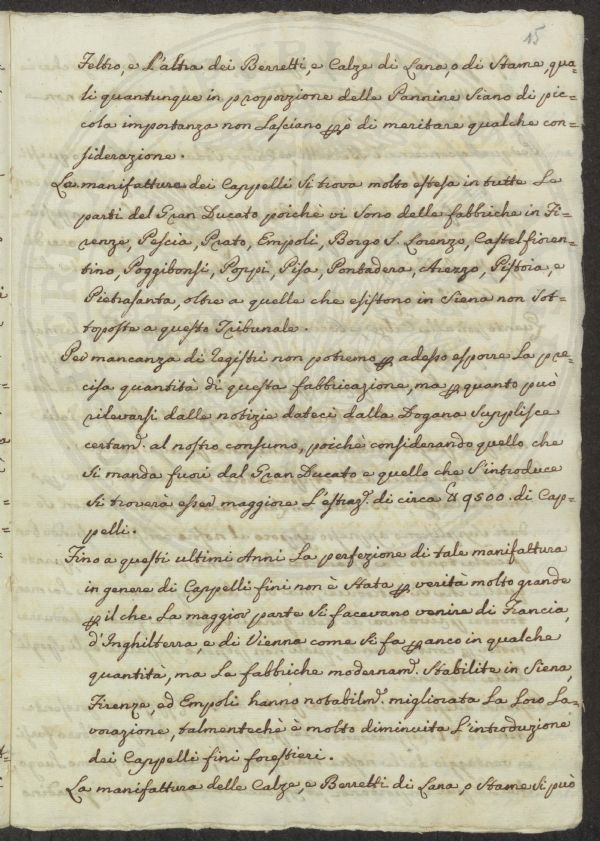 15
Feltro, e L'altra dei Berretti, e Calze di Lana, o di Stame, qua=
li quantunque in proporzione delle Pannine Siano di pic=
cola importanza non Lasciano però di meritare qualche con=
siderazione.
La manifattura dei Cappelli Si trova molto estesa in tutte Le
parti del Gran Ducato poichè vi Sono delle fabbriche in Fi=
renze, Pescia, Prato, Empoli, Borgo S. Lorenzo, Castelfioren=
tino, Poggibonsi, Poppi, Pisa, Pontadera, Arezzo, Pistoia, e
Pietrasanta, oltre a quelle che esistono in Siena non Sot=
toposte a questo Tribunale.
Per mancanza di Registri non potremo p adesso esporre La pre=
cisa quantità di questa fabbricazione, ma p quanto può
rilevarsi dalle notizie dateci dalla Dogana Supplisce
certam. al nostro consumo, poichè considerando quello che
Si manda fuori dal Gran Ducato e quello che S'introduce
Si troverà esser maggiore L'estraz. di circa 9500. di Cap=
pelli.
Fino a questi ultimi Anni La perfezione di tale manifattura
in genere di Cappelli fini non è Stata p verità molto grande
p il che La maggior parte Si facevano venire di Francia,
d'Inghilterra, e di Vienna come Si fa p anco in qualche
quantità, ma Le fabbriche modernam. Stabilite in Siena,
Firenze, ed Empoli hanno notabilm. migliorata La Loro La=
vorazione, talmentechè è molto diminuita L'introduzione
dei Cappelli fini forestieri.
La manifattura delle Calze, e Berretti di Lana, o Stame Si può